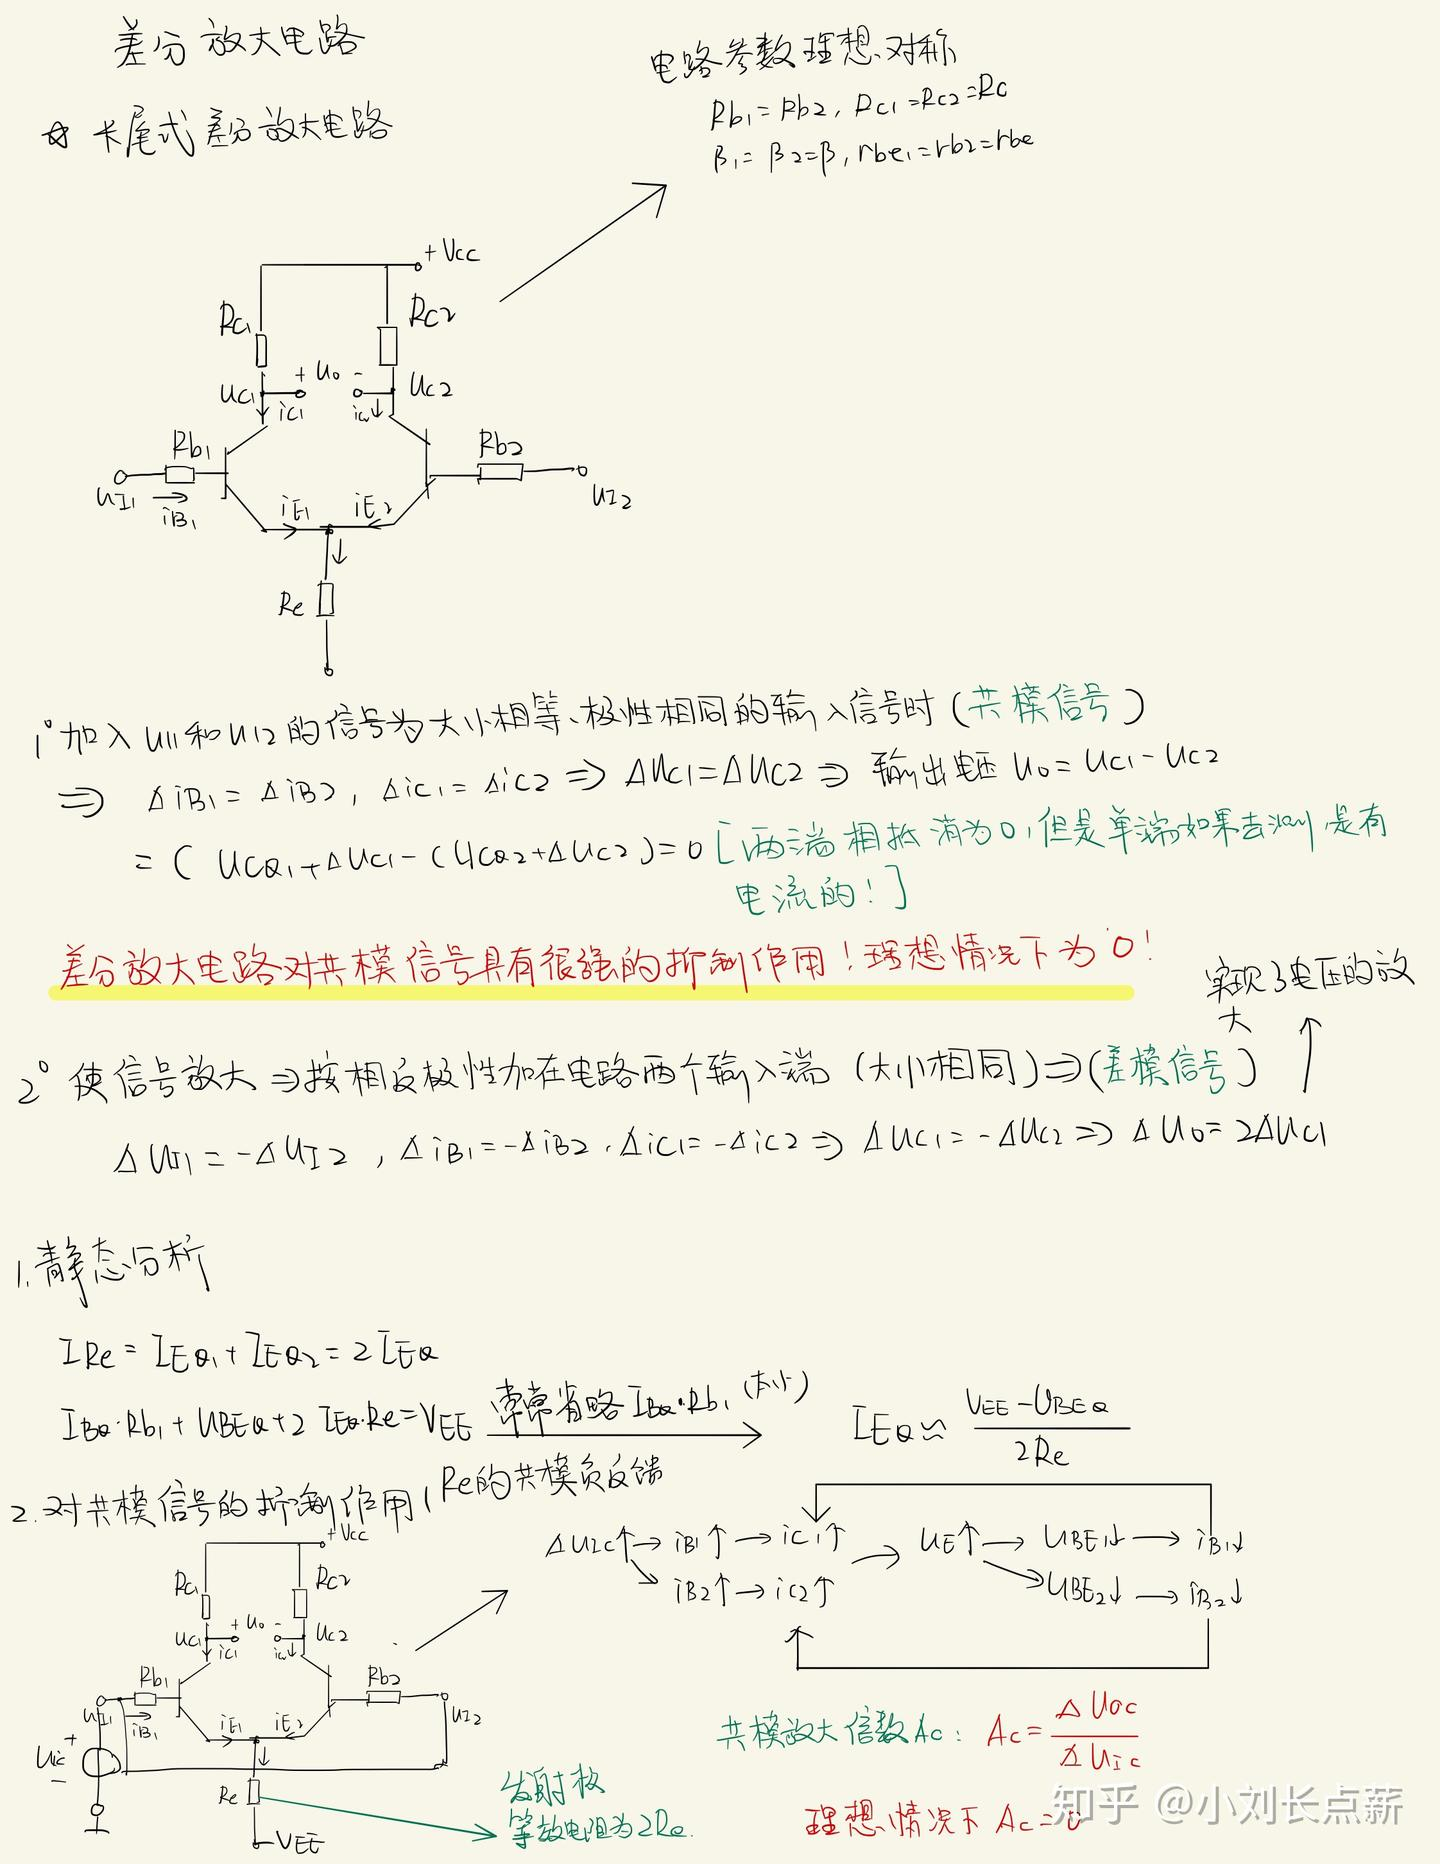 差分放大电路
电路参数理想对称
Rb1=Rb2, Rc1=Rc2=Rc
β1=β2=β, rbe1=rb2=rbe
☆ 长尾式差分放大电路
+Vcc
Rc1
Rc2
+ uo -
uc1
uc2
ic1
Rb1
Rb2
uI1
iB1
iE1
iE2
uI2
Re
1° 加入uI1和uI2的信号为大小相等、极性相同的输入信号时(共模信号)
⇒ ΔiB1=ΔiB2, Δic1=Δic2 ⇒ Δuc1=Δuc2 ⇒ 输出电压 uo=uc1-uc2
=( UCQ1+Δuc1-(UCQ2+Δuc2)=0 [两端相抵消为0,但是单端如果去测,是有
电流的!]
差分放大电路对共模信号具有很强的抑制作用!理想情况下为0!
实现了电压的放
大
2° 使信号放大 ⇒ 按相反极性加在电路两个输入端 (大小相同)⇒(差模信号)
ΔuI1=-ΔuI2, ΔiB1=-ΔiB2, Δic1=-Δic2 ⇒ Δuc1=-Δuc2 ⇒ Δuo=2Δuc1
1.静态分析
IRe=IEQ1+IEQ2=2IEQ
IBQ·Rb1+UBEQ+2IEQ·Re=VEE
常常省略IBQ·Rb1(太小)
IEQ≈ VEE-UBEQ / 2Re
2.对共模信号的抑制作用,Re的共模负反馈
+Vcc
Rc1
Rc2
+ uo -
uc1
uc2
ic1
Rb1
Rb2
uI1
iB1
iE1
iE2
uI2
uic
+
-
Re
-VEE
ΔuIc↑→iB1↑→ic1↑
iB2↑→ic2↑
uE↑→uBE1↓→iB1↓
uBE2↓→iB2↓
共模放大倍数Ac: Ac= Δuoc / ΔuIc
发射极
等效电阻为2Re.
理想情况下 Ac=0
知乎 @小刘长点薪